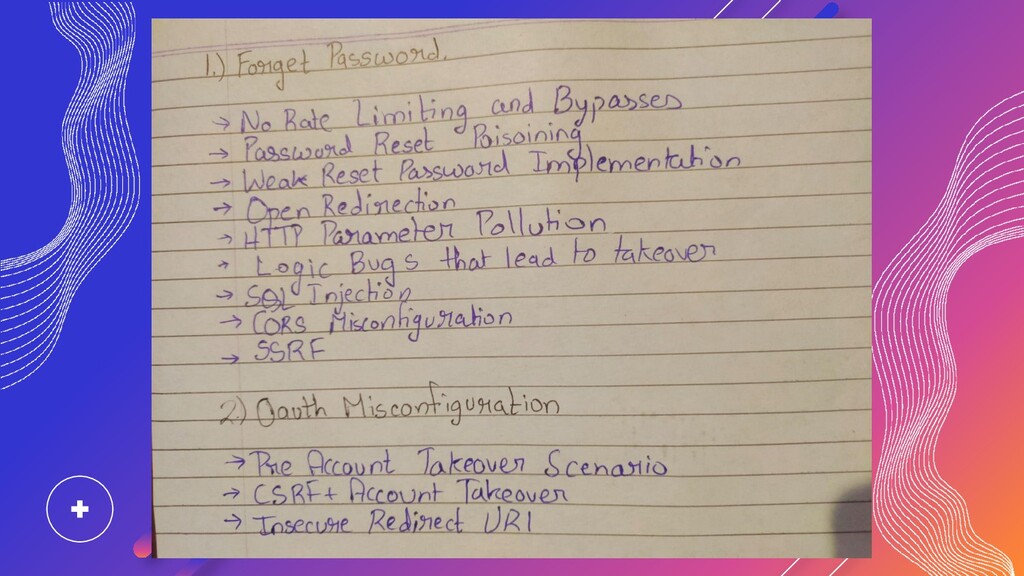 1.) Forget Password.
→ No Rate Limiting and Bypasses
→ Password Reset Poisoining
→ Weak Reset Password Implementation
→ Open Redirection
→ HTTP Parameter Pollution
→ Logic Bugs that lead to takeover
→ SQL Injection
→ CORS Misconfiguration
→ SSRF
2) Oauth Misconfiguration
→ Pre Account Takeover Scenario
→ CSRF+ Account Takeover
→ Insecure Redirect URI